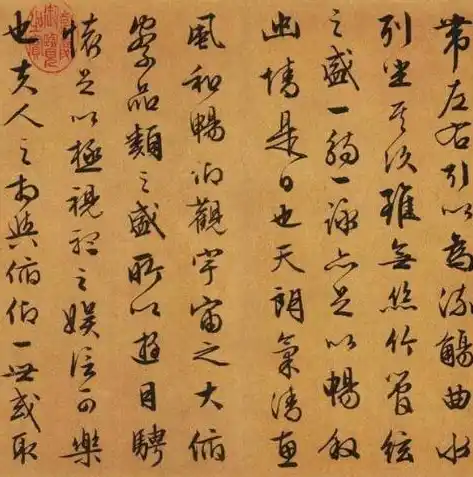 帶左右引以為流觴曲水
列坐其次雖無絲竹管絃
之盛一觴一詠亦足以暢敘
幽情是日也天朗氣清惠
風和暢仰觀宇宙之大俯
察品類之盛所以遊目騁
懷足以極視聽之娛信可樂
也夫人之相與俯仰一世或取